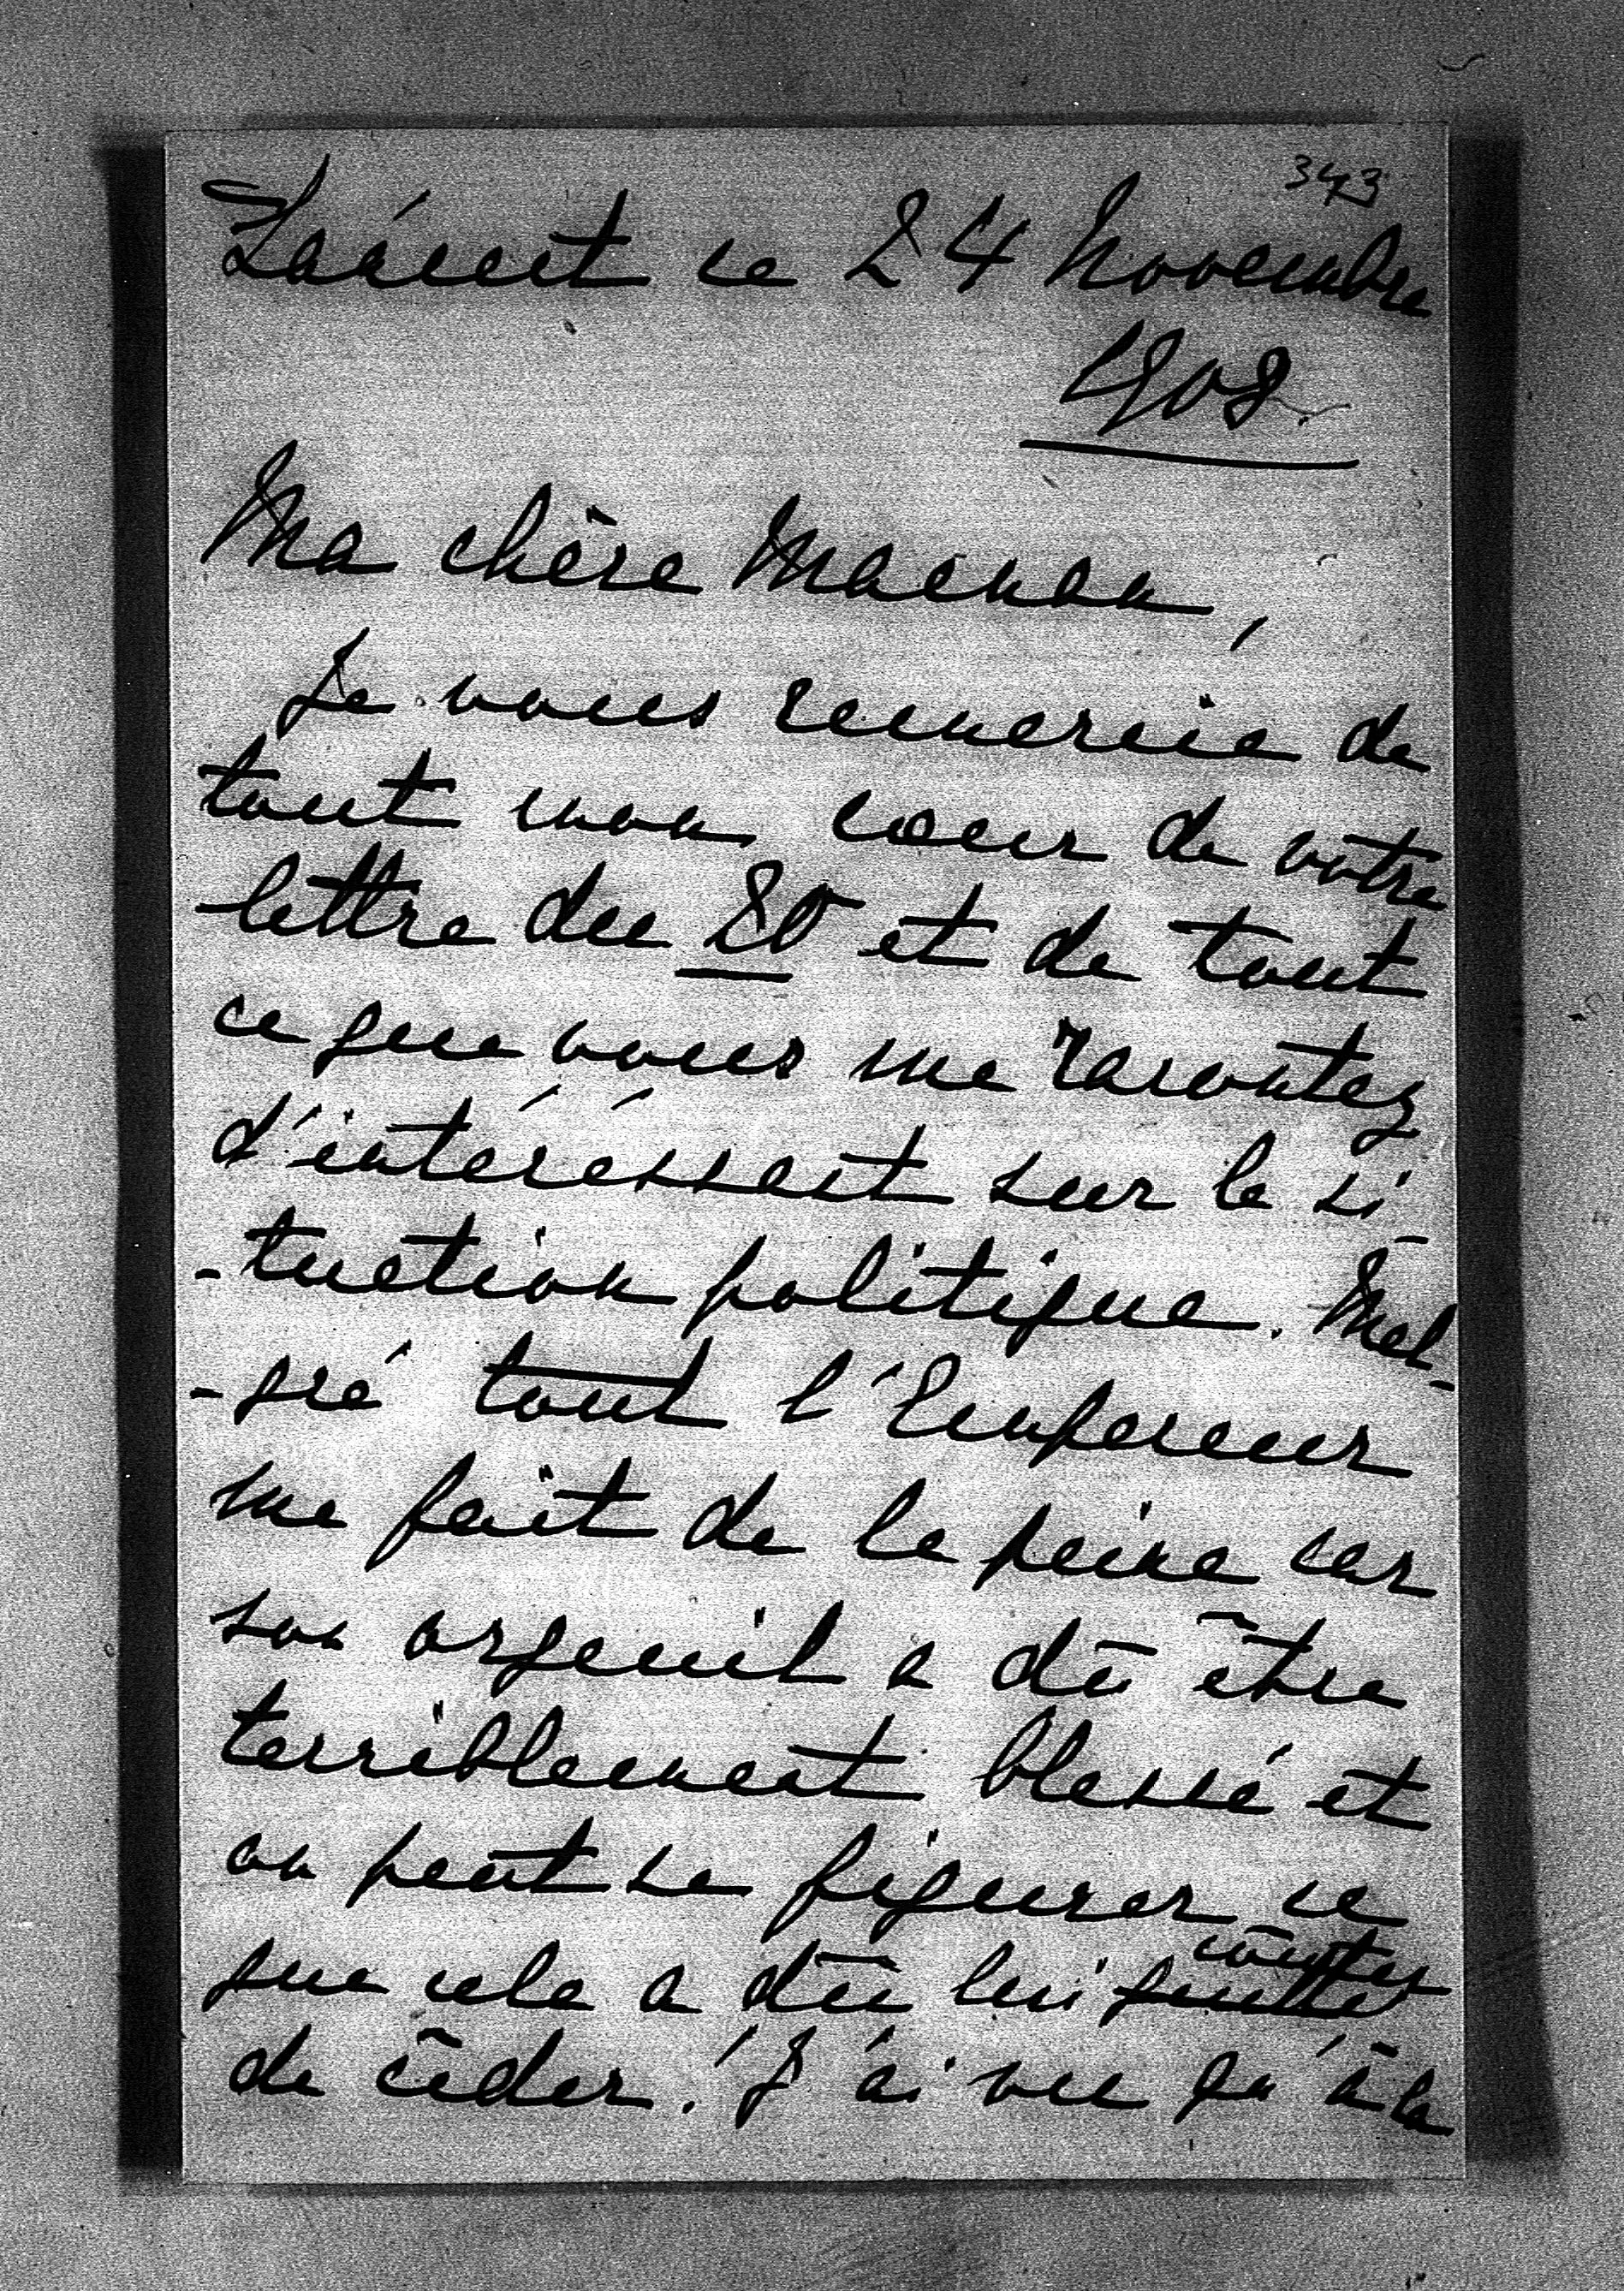 343
Laácut ce 24 Novembre
1908.
Ma chère Maman,
Je vous remercie de
tout mon coeur de vôtre
lettre du 20 et de tout
ce que vous me racontez
d'intéréssant sur la si-
-tuation politique. Mal-
-gré tout l'Empereur
me fait de la peine car
son orgeuil a dû être
terriblement blessé et
on peut se figurer ce
que cela a dû lui coûter
de céder. J'ai vu qu'à la